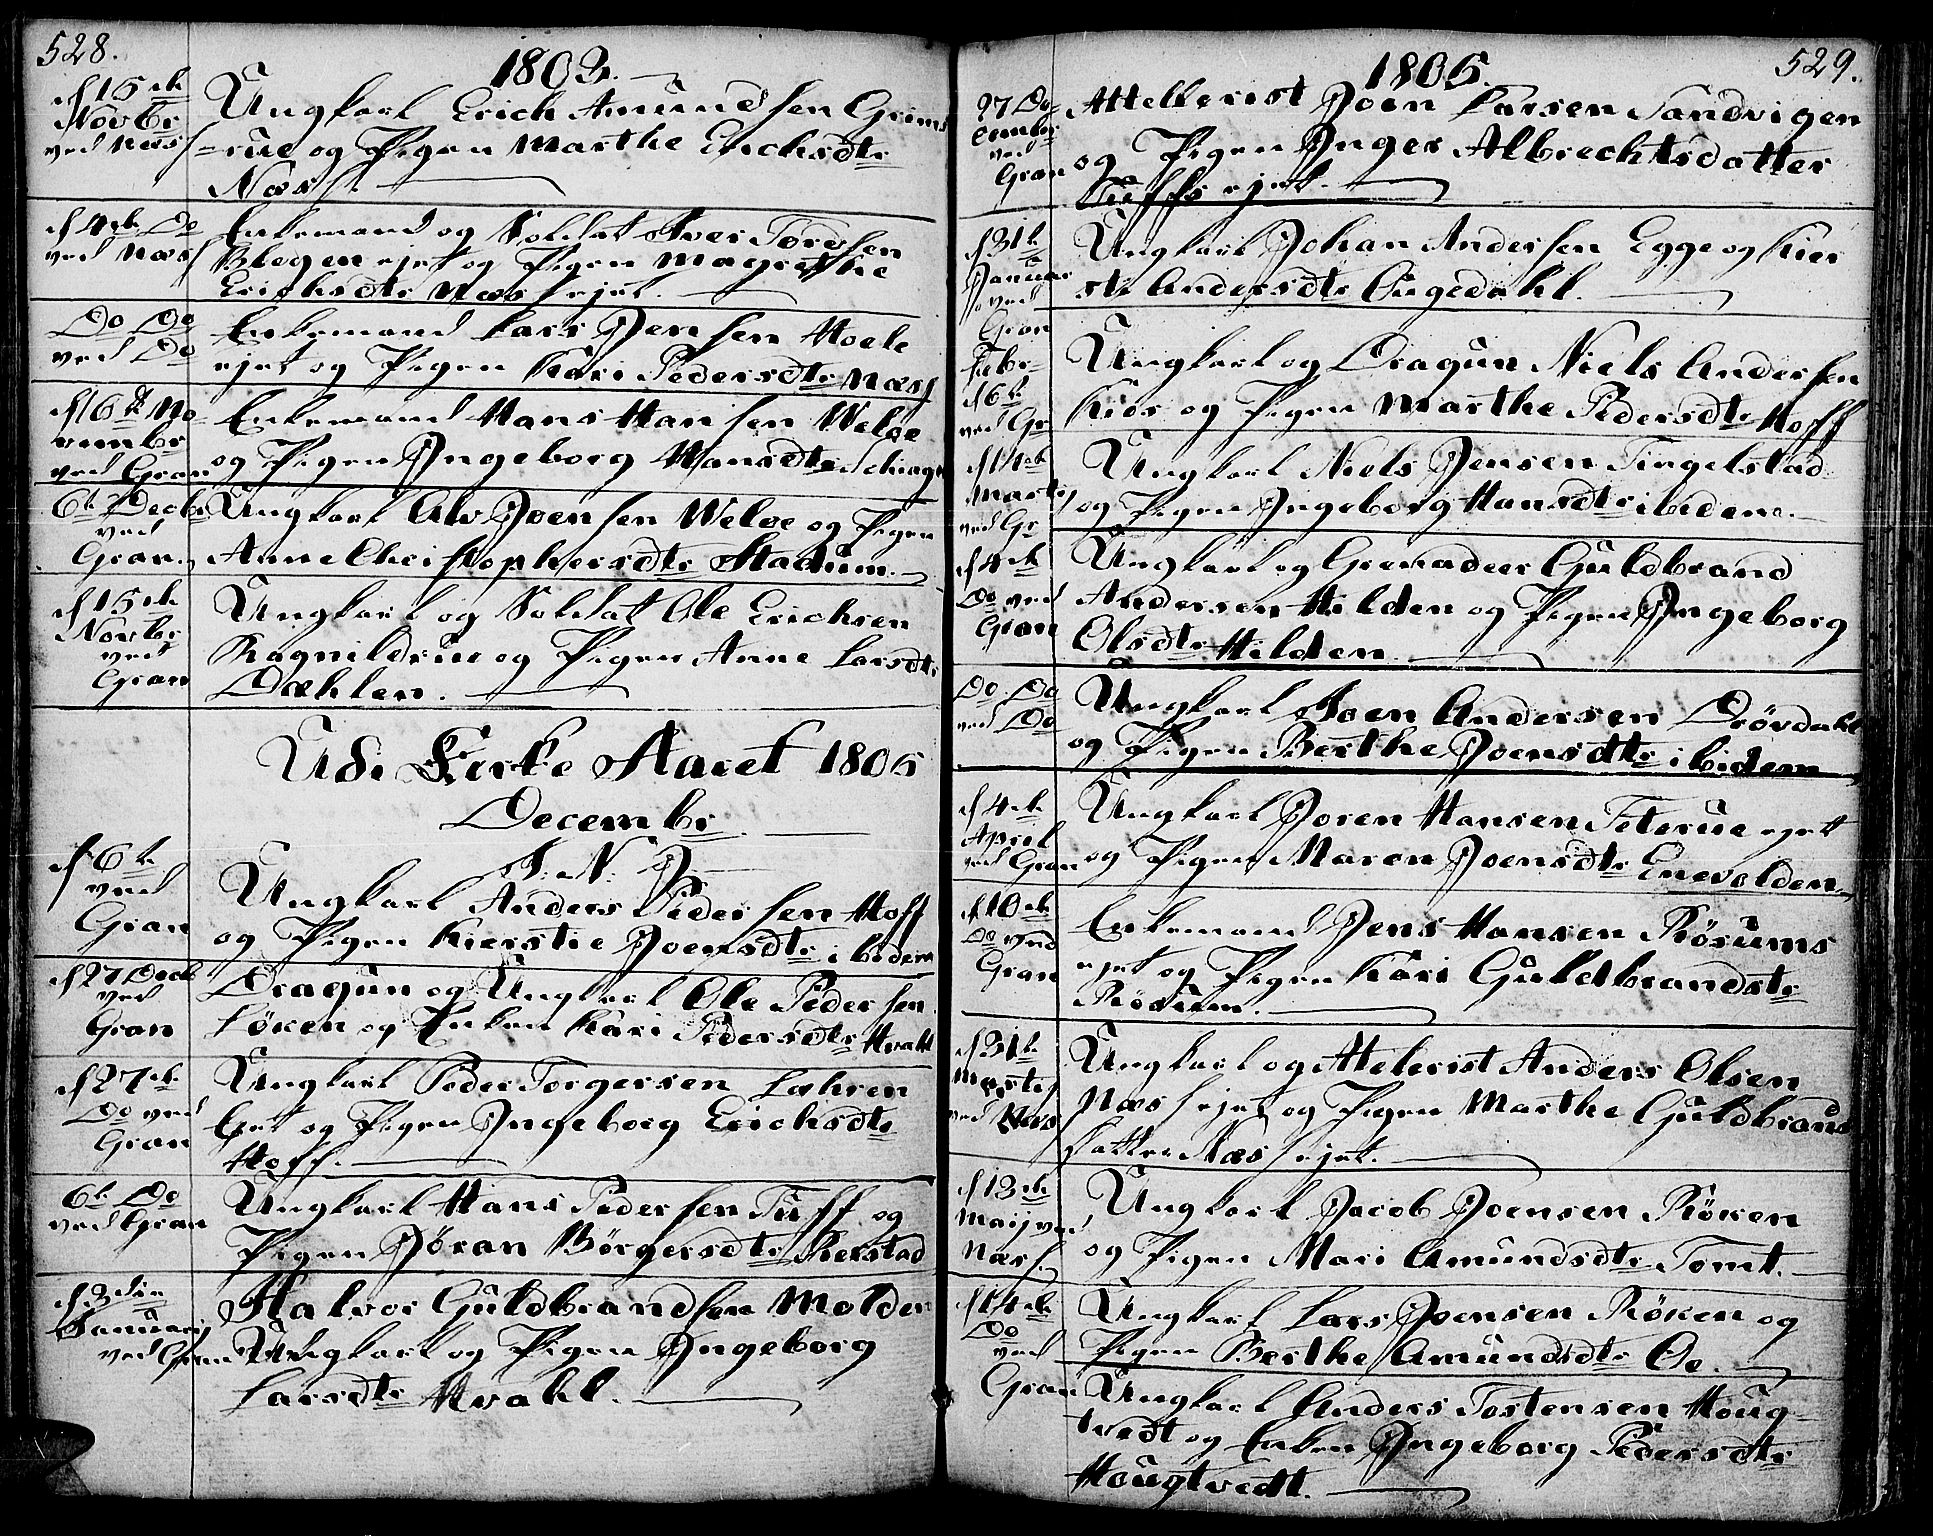 528.
1803.
d 15de
Novbr
ved Næss
Ungkarl Erich Amundsen Grims
=rue og Pigen Marthe Erichsdtr
Næss.
d 4de Do
ved Næss
Enkemand og Soldat Iver Tordsen
Blegen ejet og Pigen Magrethe
Erichsdtr Næss ejet.
Do Do
ved Do
Enkemand Lars Jensen Hoele
ejet og Pigen Kari Pedersdtr Næss
d 6te No-
vembr
ved Gran
Enkemand Hans Hansen Weløe
og Pigen Ingeborg Hansdtr
6te Decbr
ved
Gran
Ungkarl Alv Joensen Weløe og Pigen
Anne Christophersdtr Stadum.
d 15de
Novbr
ved
Gran
Ungkarl og Soldat Ole Erichsen
Ragnildrue og Pigen Anne Larsdtr
Dæhlen.
Udi Kirke Aaret 1805
Decembr
J. N. J.
d 6te
ved
Gran
Ungkarl Anders Pedersen Hoff
og Pigen Kierstie Joensdtr ibidem
d 27 Decb
ved
Gran
Dragun og Ungkarl Ole Pedersen
Løken og Enken Kari Pedersdtr Hvahl
d 27de
Do ved
Gran
Ungkarl Peder Torgersen Læhren
Ejet og Pigen Ingeborg Erichsdtr
Hoff.
6te Do
ved Gran
Ungkarl Hans Pedersen Tuff og
Pigen Jøran Børgersdtr Kierstad
d 3die
Januarij
ved Gran
Halvor Guldbrandsen Molden
Ungkarl og Pigen Ingeborg
Larsdtr Hvahl.
1805.
529.
27 De
cembr
ved
Gran
Attellerist Joen Larsen Sandvigen
og Pigen Inger Albrechtsdatter
Tuffs ejet.
d 31te
Januar
ved
Gran
Ungkarl Johan Andersen Egge og Kier
sti Andersdtr Ougedahl.
Febr
d 6te
ved Gr
Ungkarl og Dragun Niels Andersen
Kios og Pigen Marthe Pedersdtr Hoff
d 14de
Martij
ved Gr
Ungkarl Niels Jensen Tingelstad
og Pigen Ingeborg Hansdtr ibidem.
d 4de
Do ved
Gran
Ungkarl og Grenadeer Guldbrand
Andersen Hilden og Pigen Ingeborg
Olsdtr Hilden
Do Do
ved Do
Ungkarl Joen Andersen Drövdahl
og Pigen Berthe Joensdtr ibidem
d 4de
April
ved Gran
Ungkarl Joren Hansen Teterue ejet
og Pigen Maren Joensdtr Enevolden
d 10de
Do ved
Gran
Enkemand Jens Hansen Røsums
ejet og Pigen Kari Guldbrandsdtr
Røsum.
d 31te
Martij
ved Næs
Ungkarl og Attelerist Anders Olsen
Næss ejet og Pigen Marthe Guldbrands
datter Næss ejet.
d 13de
Maij ved
Næss.
Ungkarl Jacob Joensen Røken
og Pigen Mari Amundsdtr Tomt.
d 14de
Do
ved
Gran
Ungkarl Lars Joensen Røken og
Pigen Berthe Amundsdtr Oe.
Ungkarl Anders Tostensen Houg-
tvedt og Enken Ingeborg Pedersdtr
Hougtvedt.